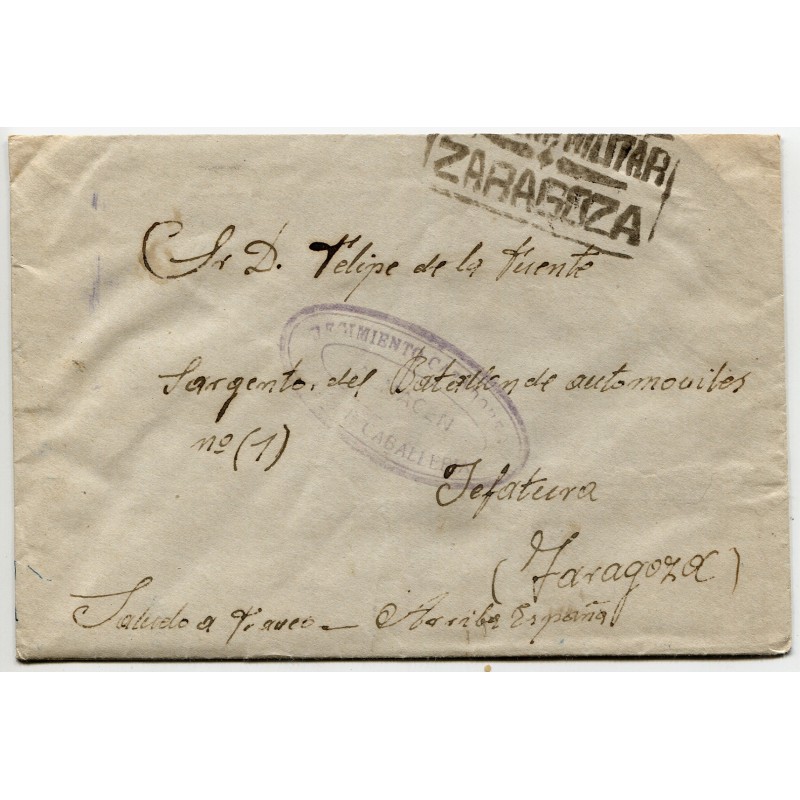 MILITAR
ZARAGOZA
Sr D. Felipe de la Fuente
REGIMIENTO
CABALLER
Sargento. del Batallon de automoviles
nº (1)
Jefatura
(Zaragoza)
Saludo a Franco - Arriba España